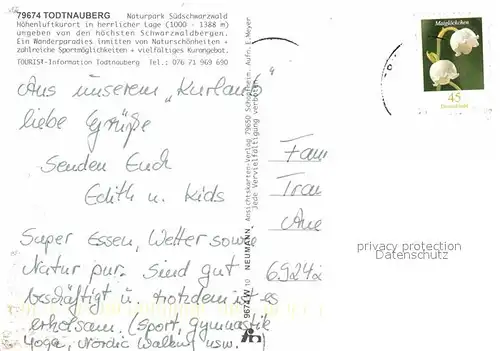 79674 TODTNAUBERG Naturpark Südschwarzwald
Höhenluftkurort in herrlicher Lage (1000 - 1388 m)
umgeben von den höchsten Schwarzwaldbergen.
Ein Wanderparadies inmitten von Naturschönheiten +
zahlreiche Sportmöglichkeiten + vielfältiges Kurangebot.
TOURIST-Information Todtnauberg Tel.: 076 71 969 690
Aus unserem „Kurlaub“
liebe Grüße
Senden Euch
Edith u. Kids
Super Essen, Wetter sowie
Natur pur. Sind gut
beschäftigt u. trotzdem ist es
erholsam. (Sport, Gymnastik
Yoga, Nordic Walking usw.
79674 W 10 NEUMANN Ansichtskarten-Verlag 79650 Schopfheim. Aufn. E. Meyer
Jede Vervielfältigung verboten.
Maiglöckchen
45
Deutschland
Fam
Trau
69242
privacy protection
Datenschutz